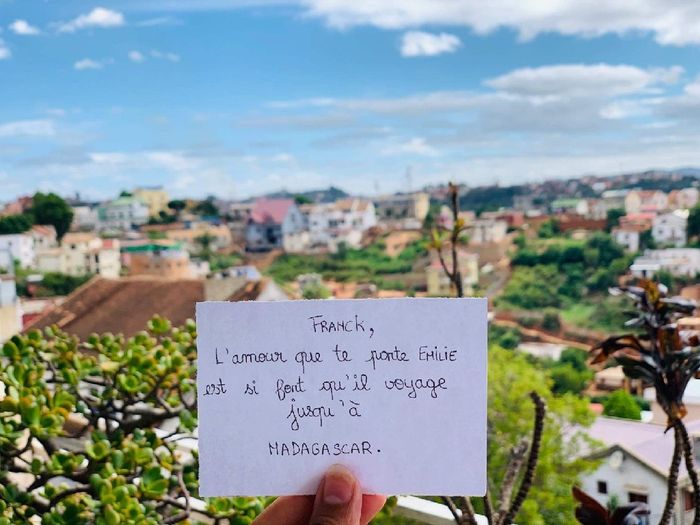 FRANCK,
L'amour que te porte EMILIE
est si fort qu'il voyage
jusqu'à
MADAGASCAR.